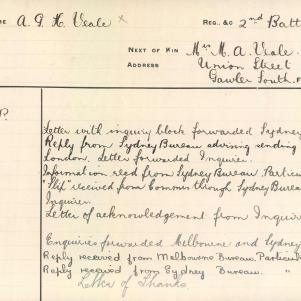 ME A. G. H. Veale x REG. &c 2nd Batt
NEXT OF KIN Mrs M. A. Veale.
ADDRESS Union Street
Gawler South. F
P.
Letter with inquiry block forwarded Sydney
Reply from Sydney Bureau advising sending
London. Letter forwarded Inquirer.
Information recd from Sydney Bureau. Particu
"Slip" received from Commrs through Sydney Burea
Inquirer.
Letter of acknowledgement from Inquir
Enquiries forwarded Melbourne and Sydney
Reply received from Melbourne Bureau. Particul
Reply received from Sydney Bureau. "
Letter of Thanks.